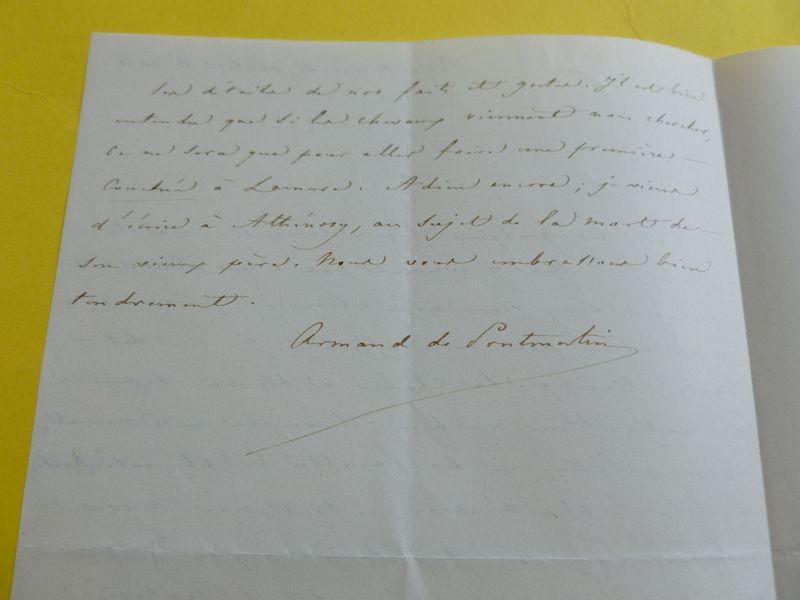 les détails de nos faits et gestes. Il est bien
entendu que si les chevaux viennent nous chercher,
ce ne sera que pour aller faire une première
couchée à Lamure. Adieu encore ; je viens
d'écrire à Athénosy, au sujet de la mort de
son vieux père. Nous vous embrassons bien
tendrement.
Armand de Pontmartin